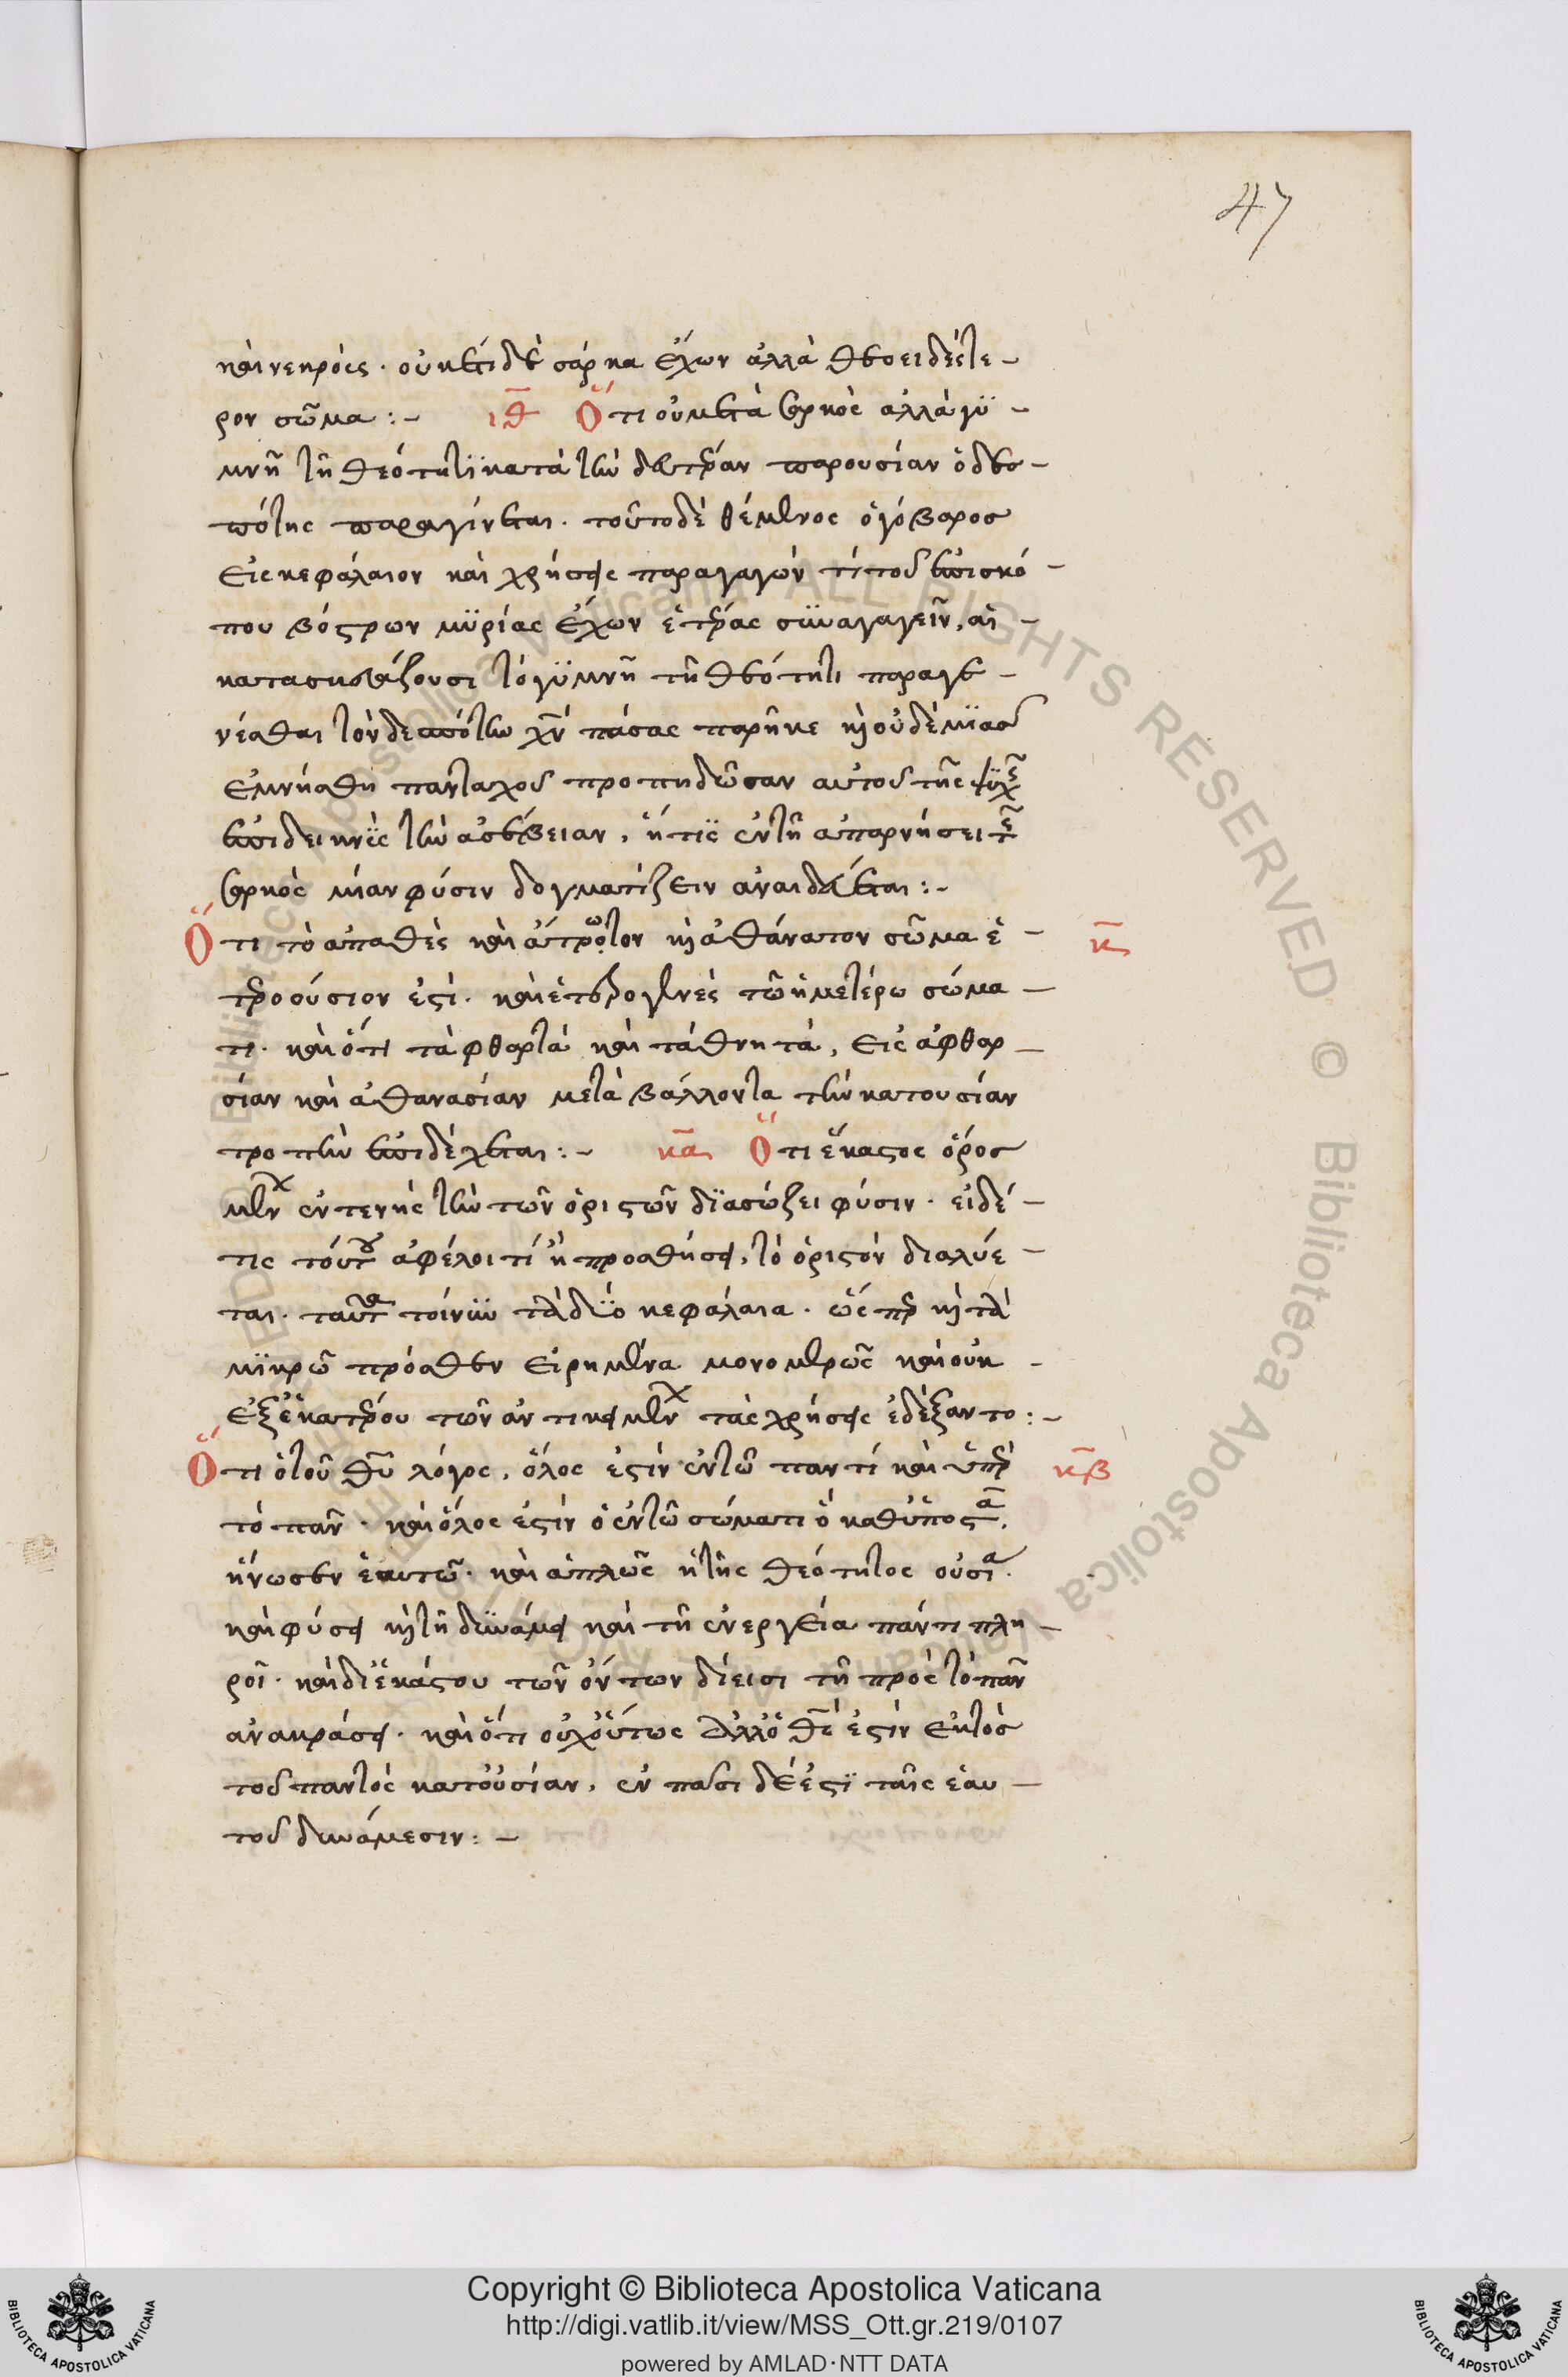 47
καὶ νεκρούς. οὐκέτι δὲ σάρκα ἔχων ἀλλὰ θεοειδέστε-
ρον σῶμα:- ιθ Ὅτι οὐ μετὰ σαρκὸς ἀλλὰ γϋ-
μνῆ τῆ θεότητϊ κατὰ τὴν δευτέραν παρουσίαν ὁ δεσ-
πότης παραγίνεται. τοῦτο δὲ θέμενος ὁ γόβαρος
εἰς κεφάλαιον καὶ χρήσεις παραγαγὼν τί τοῦ ἐπισκό-
που βόστρων μϋρίας ἔχων ἑτέρας συναγαγεῖν, αἳ
κατασκευάζουσι τὸ γϋμνῆ τῆ θεότητι παραγε-
νέσθαι τὸν δεσπότην χν πάσας παρῆκε καὶ οὐδὲ μϊᾶσ
ἐμνήσθη πανταχοῦ προπηδῶσαν αὐτοῦ τῆς ψϋχῆς
ἐπιδεικνὺς τὴν ἀσέβειαν, ἥτις ἐν τῆ ἀπαρνήσει τῆς
σαρκὸς μίαν φύσιν δογματίζειν ἀναιδεύεται:-
Ὅτι τὸ ἀπαθὲς καὶ ἄτρωτον καὶ ἀθάνατον σῶμα ἑ- κ
τεροούσιον ἐστὶ. καὶ ἑτερογενὲς τῶ ἡμετέρω σώμα-
τι. καὶ ὅτι τὰ φθαρτὰ καὶ τὰ θνητὰ, εἰς ἀφθαρ-
σίαν καὶ ἀθανασίαν μεταβάλλοντα τὴν κατουσίαν
τροπὴν ἐπιδέχεται:- κα Ὅτι ἕκαστος ὅρος
μὲν τὴν τῶν ὁριστῶν δϊασώζει φύσιν. εἰ δέ-
τις τούτου ἀφέλοι τί ἢ προσθήσει, τὸ ὁριστὸν διαλύε-
ται. ταῦτα τοίνυν τὰ δύο κεφάλαια. ὥσπερ καὶ τὰ
μϊκρῶ πρόσθεν εἰρημένα μονομερῶς καὶ οὐκ-
ἐξ ἑκατέρου τῶν ἀντικειμένων τὰς χρήσεις ἐδέξαντο:-
Ὅτι ὁ τοῦ θυ λόγος, ὅλος ἐστὶν ἐν τῶ παντὶ καὶ ὑπὲρ κβ
τὸ πᾶν. καὶ ὅλος ἐστὶν ὁ ἐν τῶ σώματι ὃ καθυπόστα,
ἥνωσεν ἑαυτῶ. καὶ ἁπλῶς ἡ τῆς θεότητος οὐσία.
καὶ φύσει καὶ τῆ δυνάμει καὶ τῆ ἐνεργεία πάντι πλη-
ροῖ. καὶ δι ἑκάστου τῶν ὄντων δίεισι τῆ πρὸς τὸ πᾶν
ἀνακράσει. καὶ ὅτι οὐχ οὕτως ἀλλ ὁ θς ἐστὶν ἐκτὸσ
τοῦ παντὸς κατ οὐσίαν, ἐν πᾶσι δέ ἐστϊ ταῖς ἑαυ-
τοῦ δυνάμεσιν:-
Copyright © Biblioteca Apostolica Vaticana
http://digi.vatlib.it/view/MSS_Ott.gr.219/0107
powered by AMLAD·NTT DATA